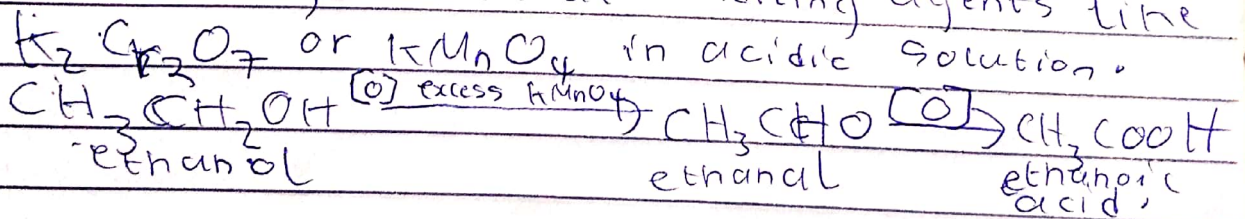 agents like
K₂Cr₂O₇ or KMnO₄ in acidic solution.
CH₃CH₂OH [O] excess KMnO₄ → CH₃CHO [O] → CH₃COOH
ethanol ethanal ethanoic
acid.